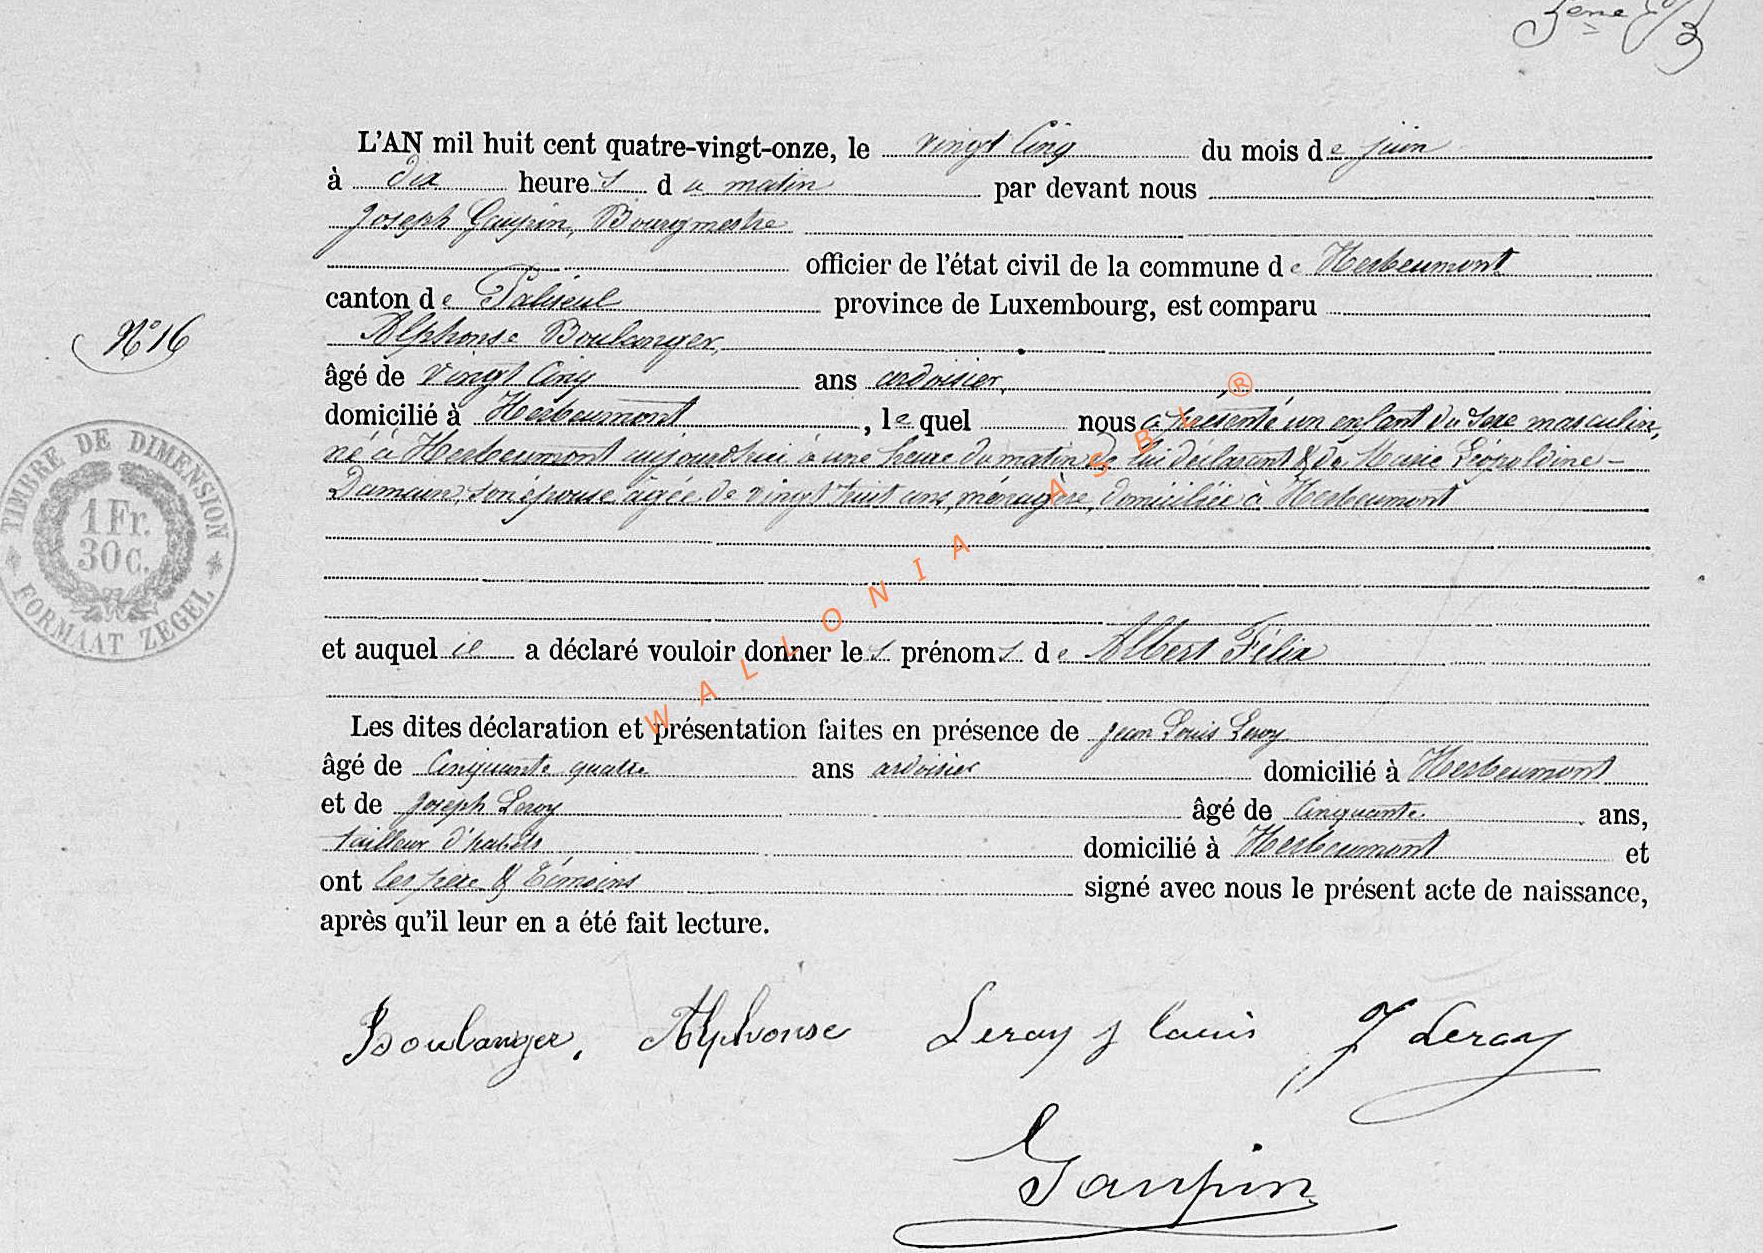 5eme
L'AN mil huit cent quatre-vingt-onze, le vingt Cinq du mois de juin
à dix heures du matin par devant nous
Joseph Gaupin, Bourgmestre
officier de l'état civil de la commune de Herbeumont
canton de Paliseul province de Luxembourg, est comparu
N° 16
Alphonse Boulanger,
âgé de vingt Cinq ans ardoisier,
domicilié à Herbeumont, lequel nous a présenté un enfant du sexe masculin,
né à Herbeumont aujourd'hui à une heure du matin de lui déclarant & de Marie Léopoldine
Damaun, son épouse âgée de vingt huit ans, ménagère, domiciliée à Herbeumont
et auquel il a déclaré vouloir donner les prénoms de Albert Félix
Les dites déclaration et présentation faites en présence de Jean Louis Leroy
âgé de Cinquante quatre ans ardoisier domicilié à Herbeumont
et de Joseph Leroy âgé de Cinquante ans,
tailleur d'habits domicilié à Herbeumont et
ont les père & témoins signé avec nous le présent acte de naissance,
après qu'il leur en a été fait lecture.
Boulanger, Alphonse Leroy j louis J Leroy
Gaupin
TIMBRE DE DIMENSION
1 Fr.
30 c.
FORMAAT ZEGEL
WALLONIA ASBL ®